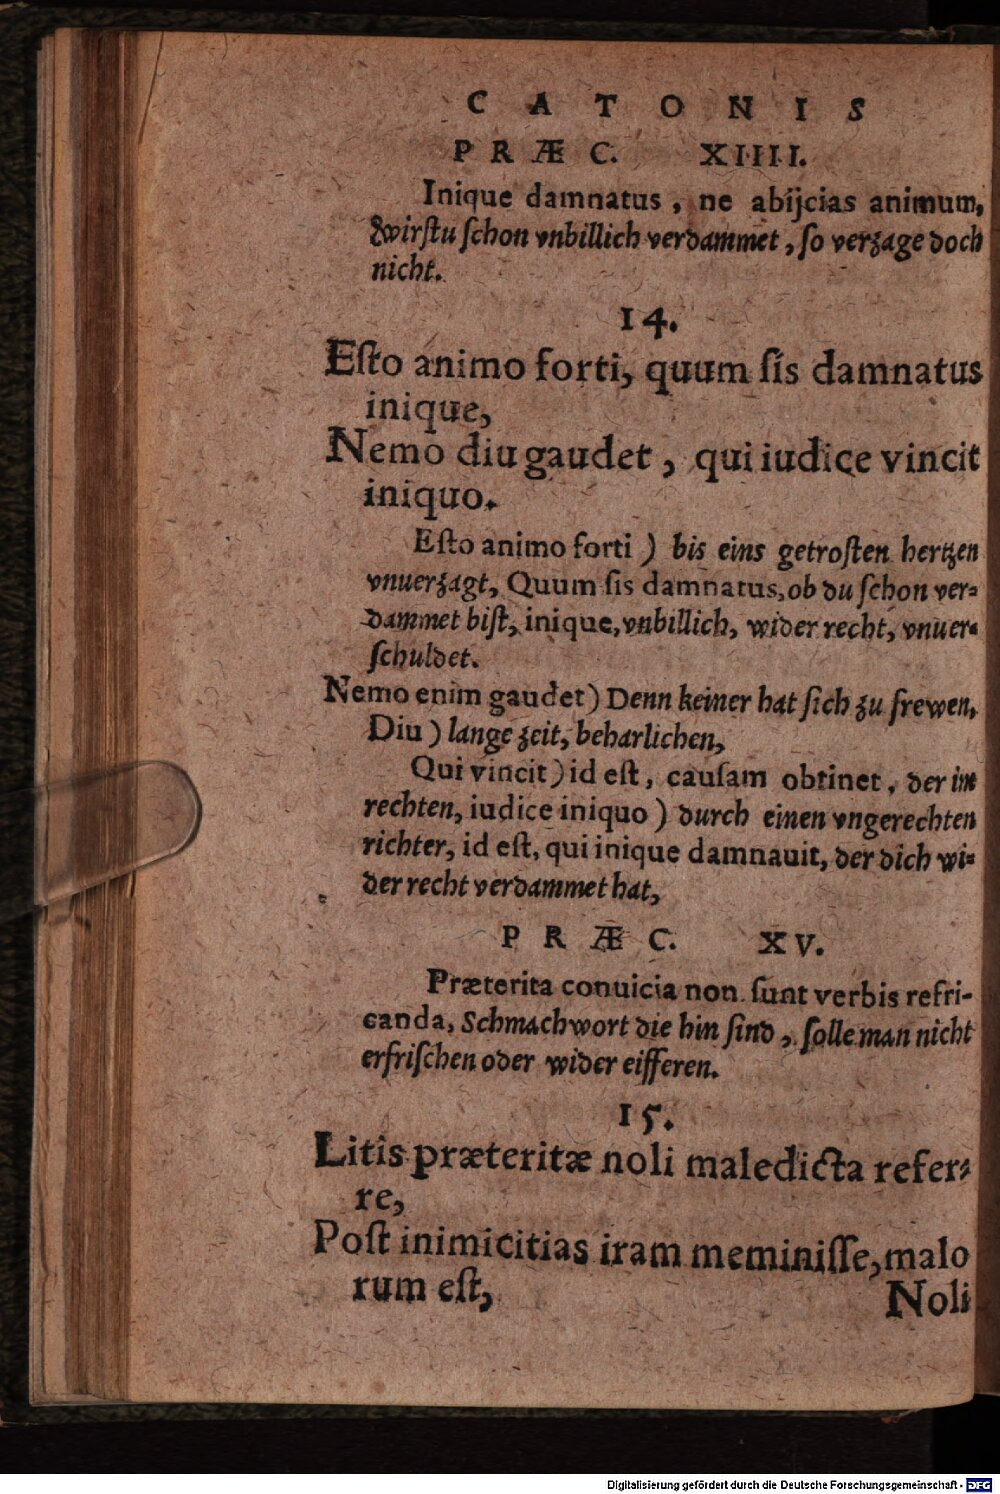 CATONIS
PRÆC. XIIII.
Inique damnatus, ne abijcias animum,
Wirstu ſchon vnbillich verdammet, ſo verzage doch
nicht.
14.
Eſto animo forti, quum ſis damnatus
inique,
Nemo diu gaudet, qui iudice vincit
iniquo.
Eſto animo forti) bis eins getroſten hertzen
vnuerzagt, Quum ſis damnatus, ob du ſchon ver-
dammet biſt, inique, vnbillich, wider recht, vnuer-
ſchuldet.
Nemo enim gaudet) Denn keiner hat ſich zu frewen,
Diu) lange zeit, beharlichen,
Qui vincit) id eſt, cauſam obtinet, der im
rechten, iudice iniquo) durch einen vngerechten
richter, id eſt, qui inique damnauit, der dich wi-
der recht verdammet hat,
PRÆC. XV.
Præterita conuicia non ſunt verbis refri-
canda, Schmachwort die hin ſind, ſolle man nicht
erfriſchen oder wider eifferen.
15.
Litis præteritæ noli maledicta refer-
re,
Poſt inimicitias iram meminiſſe, malo
rum eſt,
Noli
Digitalisierung gefördert durch die Deutsche Forschungsgemeinschaft - DFG